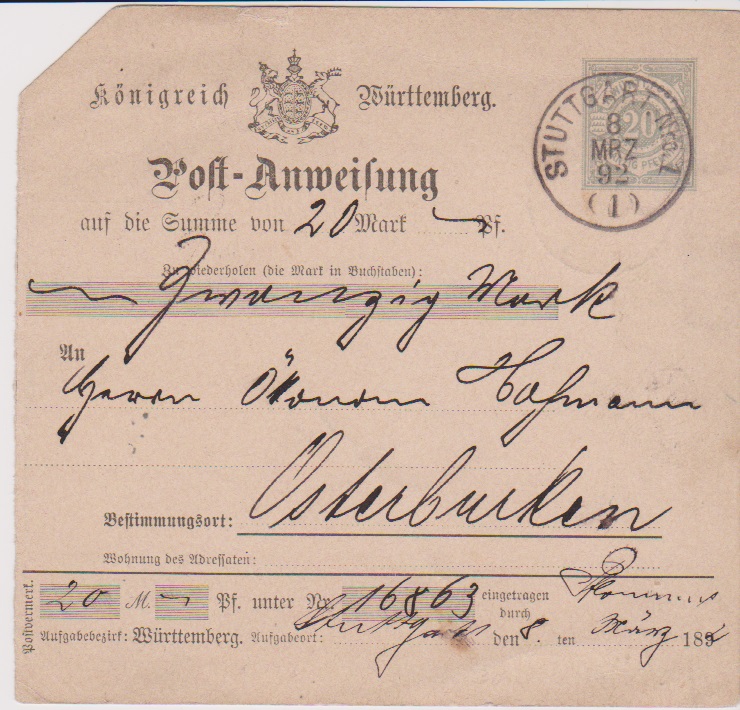 Königreich Württemberg.
20
STUTTGART No. 1
8
MRZ
92
(1)
Post-Anweisung
auf die Summe von 20 Mark — Pf.
Zu wiederholen (die Mark in Buchstaben):
— Zwanzig Mark
An
Herrn Ökonom Hofmann
Osterburken
Bestimmungsort:
Wohnung des Adressaten:
Postvermerk.
20 M. — Pf. unter Nr. 16863 eingetragen
durch
Aufgabebezirk: Württemberg. Aufgabeort: Stuttgart den 8. ten März 1892